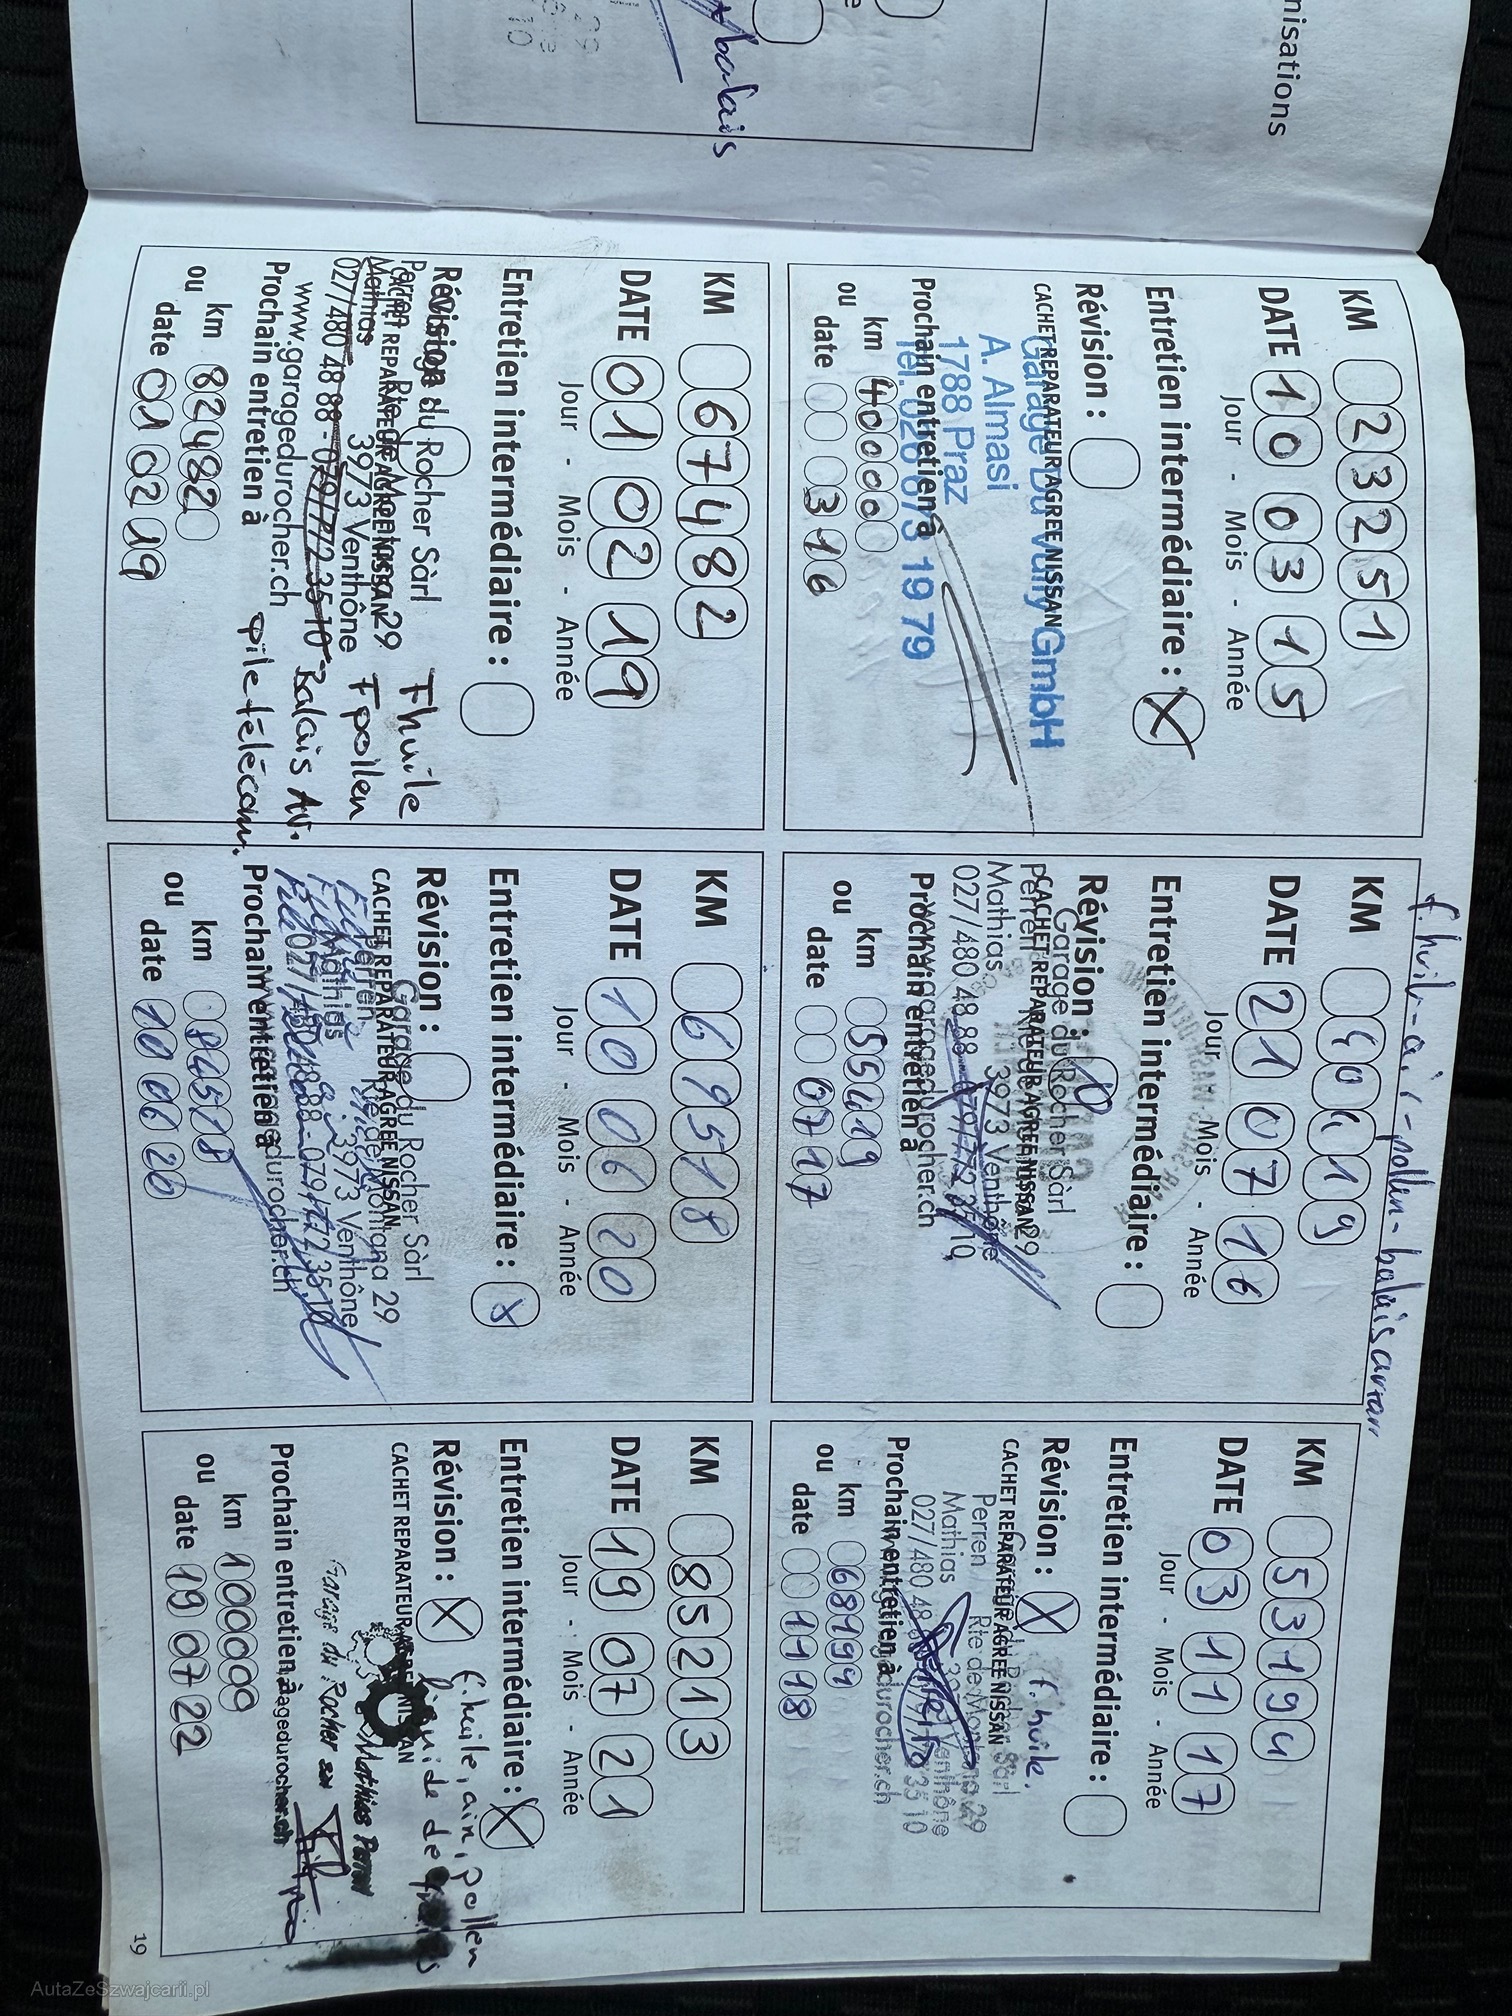 nisations
balais
KM 23251
DATE 10 03 15
Jour - Mois - Année
Entretien intermédiaire : X
Révision :
CACHET REPARATEUR AGREE NISSAN
Garage Du Vully GmbH
A. Almasi
1788 Praz
Tél. 026 673 19 79
Prochain entretien à
km 40000
ou
date 03 16
f. huile - air - pollen - balais avant
KM 40419
DATE 21 07 16
Jour - Mois - Année
Entretien intermédiaire :
Révision :
CACHET REPARATEUR AGREE NISSAN
Garage du Rocher Sàrl
Perren Rte de Montana 29
Mathias 3973 Venthône
027/480 48 88 - 079/772 35 10
www.garagedurocher.ch
Prochain entretien à
km 55419
ou
date 07 17
KM 53194
DATE 03 11 17
Jour - Mois - Année
Entretien intermédiaire :
Révision : X f. huile.
CACHET REPARATEUR AGREE NISSAN
Perren Rte de Montana 29
Mathias 3973 Venthône
027/480 48 88 - 079/772 35 10
Prochain entretien à
km 68194
ou
date 11 18
KM 67482
DATE 01 02 19
Jour - Mois - Année
Entretien intermédiaire :
Révision :
Garage du Rocher Sàrl Fhuile
CACHET REPARATEUR AGREE NISSAN
Perren Rte de Montana 29
Mathias 3973 Venthône Fpollen
027/480 48 88 - 079/772 35 10 Balais Av.
www.garagedurocher.ch
Prochain entretien à pile télécom.
km 82482
ou
date 01 02 19
KM 69518
DATE 10 06 20
Jour - Mois - Année
Entretien intermédiaire : X
Révision :
CACHET REPARATEUR AGREE NISSAN
Garage du Rocher Sàrl
Perren Rte de Montana 29
Mathias 3973 Venthône
027/480 48 88 - 079/772 35 10
Prochain entretien à
km 84518
ou
date 10 06 20
KM 85213
DATE 19 07 21
Jour - Mois - Année
Entretien intermédiaire : X
Révision : X f. huile, air, pollen
liquide de freins
CACHET REPARATEUR AGREE NISSAN
Mathias Perren
Garage du Rocher
Prochain entretien à
km 100009
ou
date 19 07 22
19
AutaZeSzwajcarii.pl